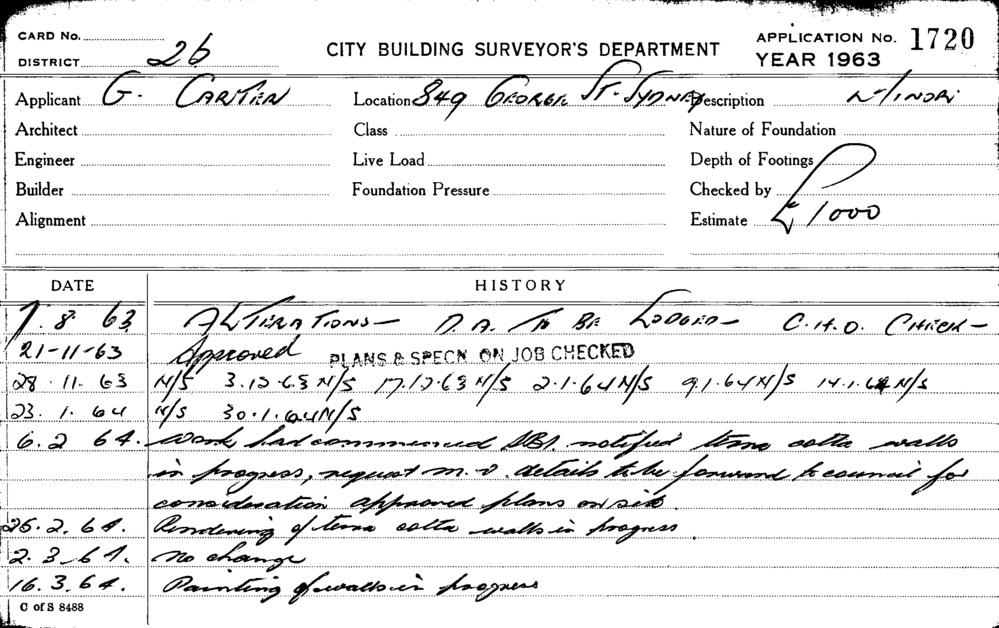 CARD No.
CITY BUILDING SURVEYOR'S DEPARTMENT
APPLICATION No. 1720
DISTRICT 26
YEAR 1963
Applicant G. CARTIER Location 849 GEORGE ST. SYDNEY Description
Architect Class Nature of Foundation
Engineer Live Load Depth of Footings
Builder Foundation Pressure Checked by
Alignment Estimate £1000
DATE HISTORY
7.8.63 ALTERATIONS - D.A. TO BE LODGED - C.H.O. CHECK -
21-11-63 Approved PLANS & SPECN ON JOB CHECKED
28.11.63 N/S 3.12.63 N/S 17.12.63 N/S 2.1.64 N/S 9.1.64 N/S 14.1.64 N/S
23.1.64 N/S 30.1.64 N/S
6.2 64. Work had commenced DBI. notified terra cotta walls
in progress, request m.v. details to be forward to council for
consideration approved plans on site.
26.2.64. Rendering of terra cotta walls in progress
2.3.64. No change
16.3.64. Painting of walls in progress
C of S 8488